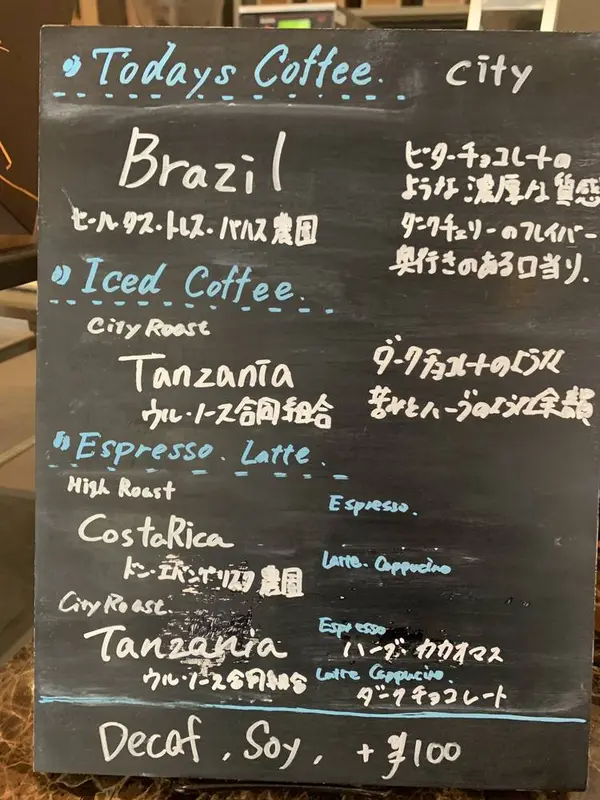 Todays Coffee. City
Brazil
セールタス・トレス・バハス農園
ビターチョコレートの
ような濃厚な質感
ダークチェリーのフレイバー
奥行きのある口当り.
Iced Coffee.
City Roast
Tanzania
ウル・ノース合同組合
ダークチョコレートのような
苦みとハーブのような余韻
Espresso. Latte.
High Roast
CostaRica
ドン・エバンゲリスタ農園
Espresso.
Latte. Cappucino
City Roast.
Tanzania
ウル・ノース合同組合
Espresso
ハーブ・カカオマス
Latte Cappucino.
ダークチョコレート
Decaf, Soy, +¥100